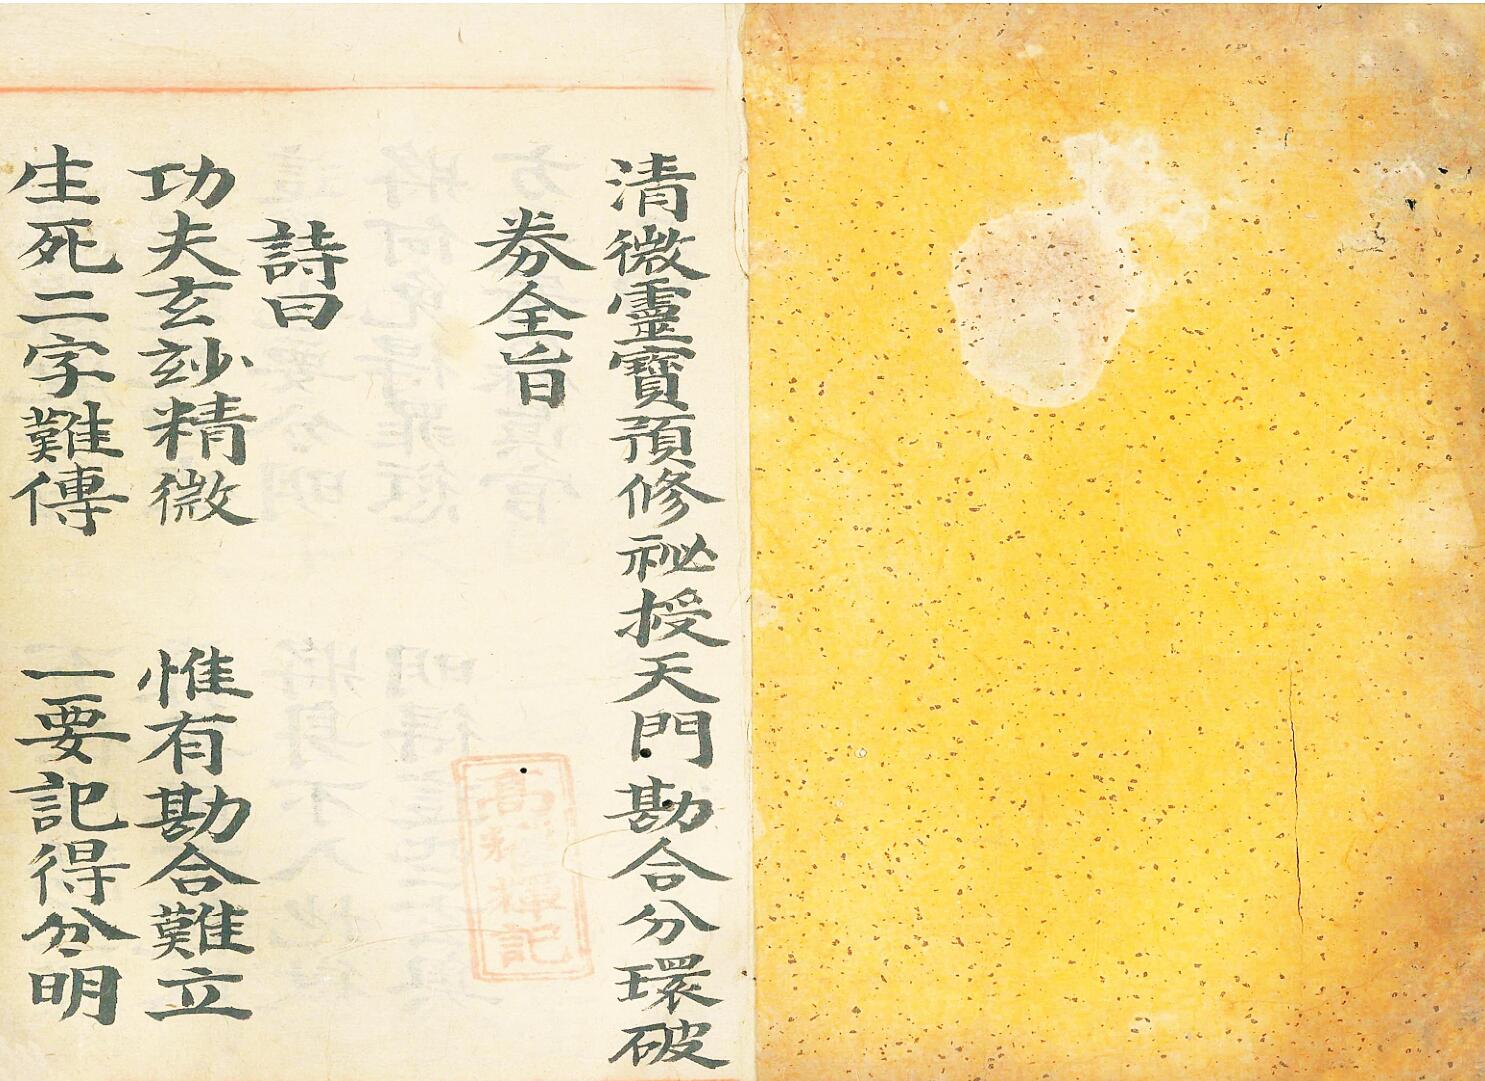 清微靈寶預修祕授天門勘合分環破
券全旨
詩曰
功夫玄妙精微 惟有勘合難立
生死二字難傳 一要記得分明
輝記